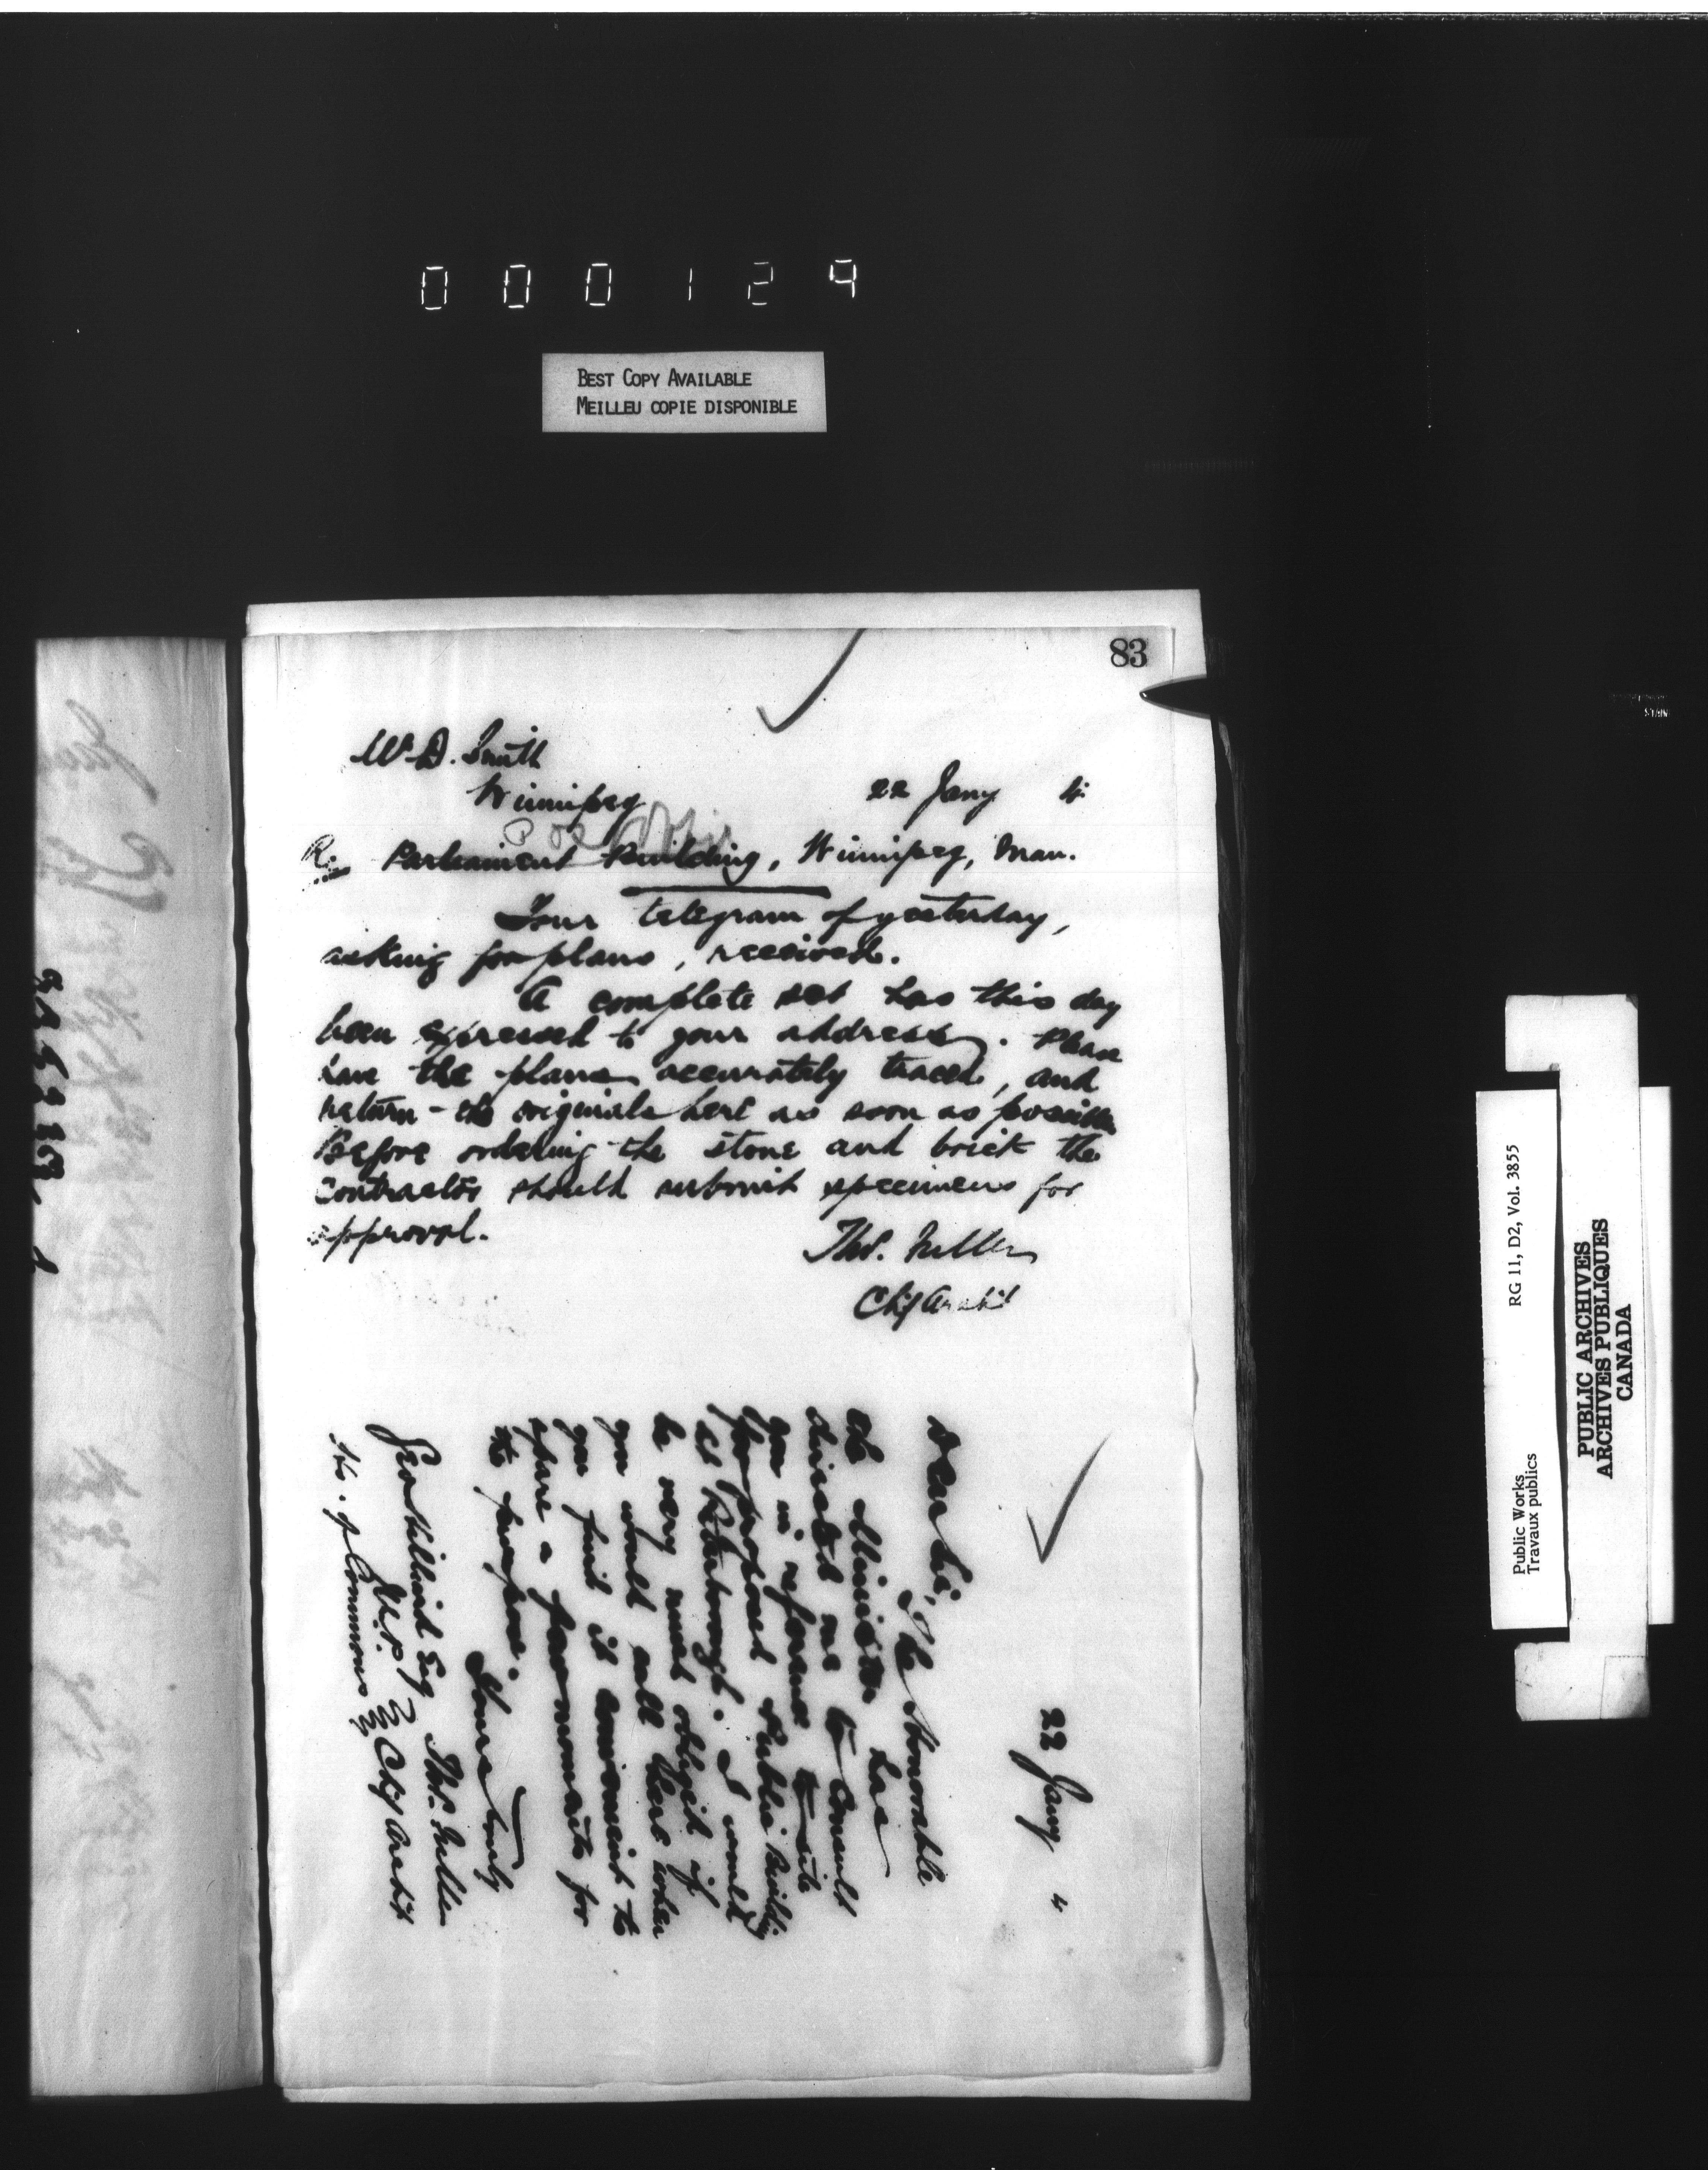 000129
BEST COPY AVAILABLE
MEILLEU COPIE DISPONIBLE
83
W. D. Smith
Winnipeg
22 Jany 4
Re Parliament Building, Winnipeg, Man.
Your telegram of yesterday,
asking for plans, received.
A complete set has this day
been expressed to your address. Please
have the plans accurately traced, and
return the originals here as soon as possible
Before ordering the stone and brick the
contractor should submit specimens for
approval.
Thos. Fuller
Chf Archt
22 Jany 4
Dear Sir,
The Honorable
the Minister has
directed me to consult
you in reference to site
for proposed Public Building
at Peterborough. I would
be very much obliged if
you would call here when
you find it convenient to
spare a few moments for
the purpose.
Yours truly
Thos. Fuller
Chf Archt
Geo Hilliard Esq
M.P.
Ho. of Commons
RG 11, D2, Vol. 3855
Public Works
Travaux publics
PUBLIC ARCHIVES
ARCHIVES PUBLIQUES
CANADA